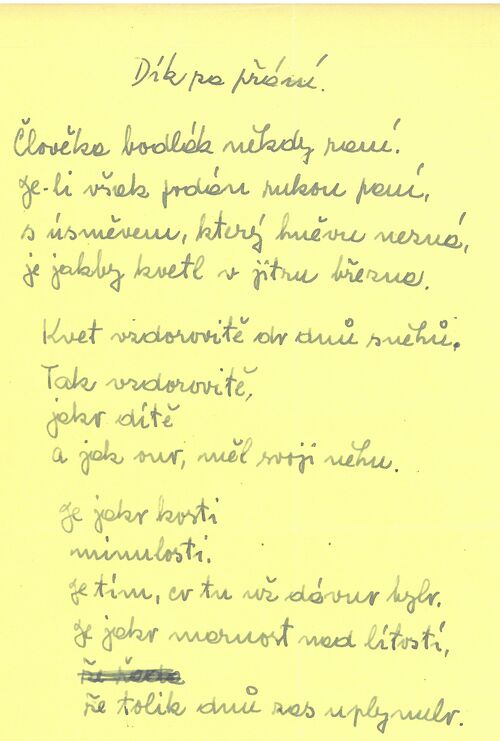 Dík za přání.
Člověka bodlák někdy raní.
Je-li však podán rukou paní,
s úsměvem, který hněvu nezná,
je jakby kvetl v jitru března.
Kvet vzdorovitě do dnů sněhů.
Tak vzdorovitě,
jako dítě
a jak ono, měl svoji něhu.
Je jako kosti
minulosti.
Je tím, co tu už dávno bylo.
Je jako marnost nad lítostí,
že tolik dnů zas uplynulo.